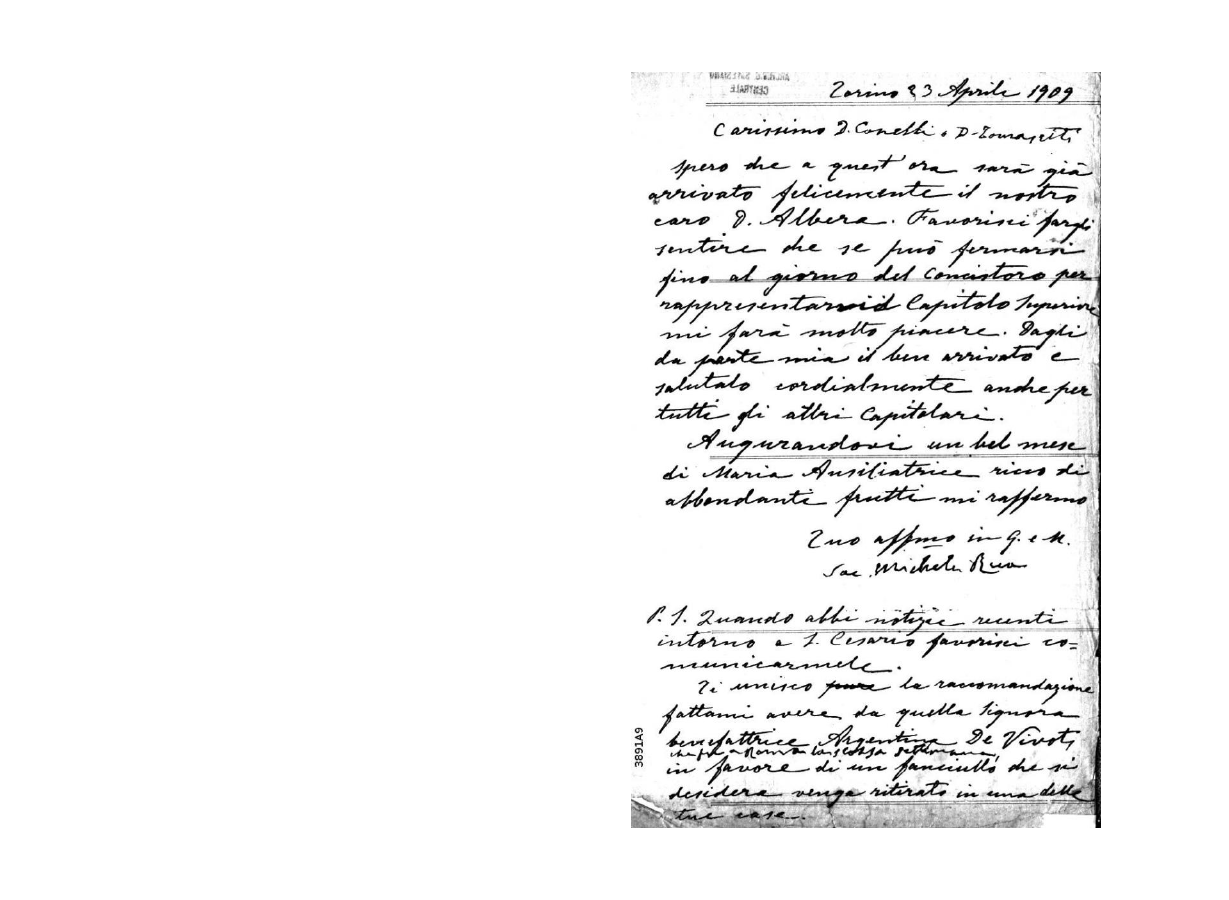 Torino 23 Aprile 1909
Carissimo D. Conelli e D. Tomasetti
spero che a quest'ora sarà già
arrivato felicemente il nostro
caro D. Albera. Favorisci fargli
sentire che se può fermarsi
fino al giorno del Concistoro per
rappresentarvi il Capitolo Superiore
mi farà molto piacere. Dagli
da parte mia il ben arrivato e
salutalo cordialmente anche per
tutti gli altri Capitolari.
Augurandovi un bel mese
di Maria Ausiliatrice ricco di
abbondanti frutti mi raffermo
Tuo affmo in G. e M.
Sac. Michele Rua
P. S. Quando abbi notizie recenti
intorno a S. Cesario favorisci co=
municarmele.
Ti unisco pure la raccomandazione
fattami avere da quella Signora
benefattrice Argentina De Vivot,
che fu a Roma la scossa settimana,
in favore di un fanciullo che si
desidera venga ritirato in una delle
tue case.
3891A9
CENTRALE